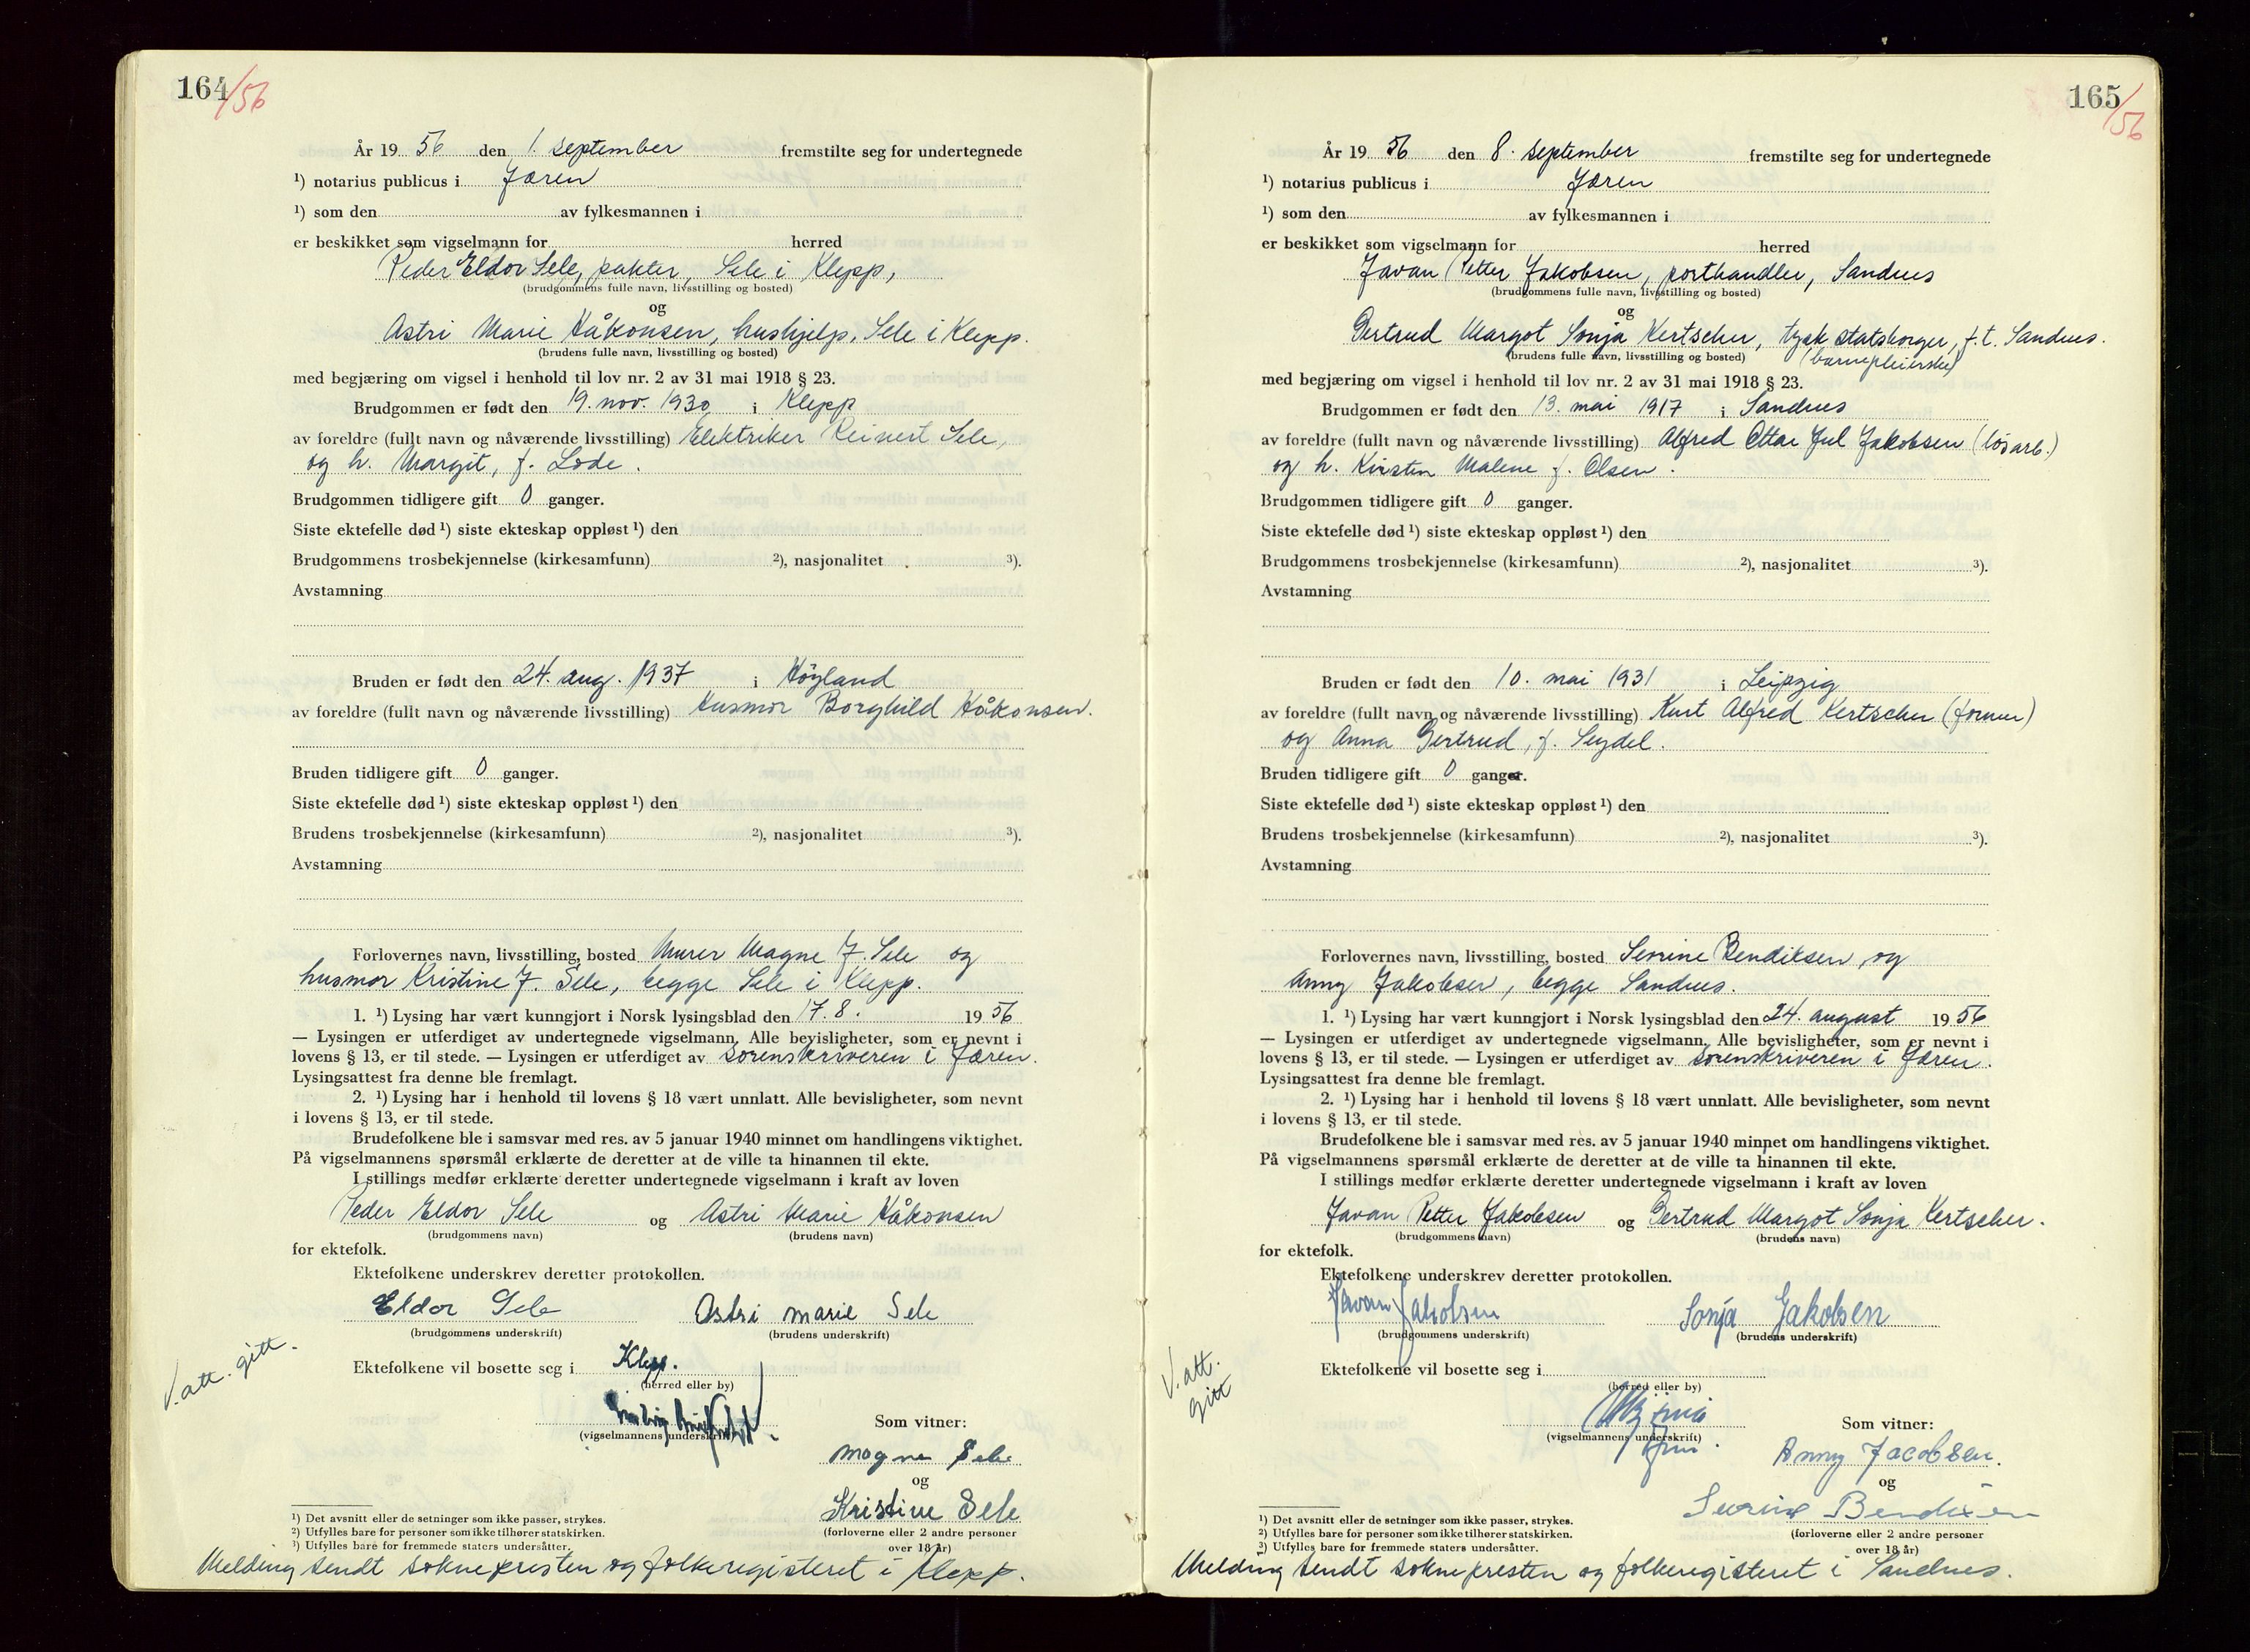 164/56
År 19 56 den 1. september fremstilte seg for undertegnede
¹) notarius publicus i Jæren
¹) som den av fylkesmannen i
er beskikket som vigselmann for herred
Peder Eldor Sele, pakter, Sele i Klepp,
(brudgommens fulle navn, livsstilling og bosted)
og
Astri Marie Håkonsen, hushjelp, Sele i Klepp.
(brudens fulle navn, livsstilling og bosted)
med begjæring om vigsel i henhold til lov nr. 2 av 31 mai 1918 § 23.
Brudgommen er født den 19. nov. 1930 i Klepp
av foreldre (fullt navn og nåværende livsstilling) Elektriker Reinert Sele,
og h. Margit, f. Lode.
Brudgommen tidligere gift 0 ganger.
Siste ektefelle død ¹) siste ekteskap oppløst ¹) den
Brudgommens trosbekjennelse (kirkesamfunn) ²), nasjonalitet ³).
Avstamning
Bruden er født den 24. aug. 1937 i Høyland
av foreldre (fullt navn og nåværende livsstilling) Husmor Borghild Håkonsen.
Bruden tidligere gift 0 ganger.
Siste ektefelle død ¹) siste ekteskap oppløst ¹) den
Brudens trosbekjennelse (kirkesamfunn) ²), nasjonalitet ³).
Avstamning
Forlovernes navn, livsstilling, bosted Murer Magne J. Sele og
husmor Kristine J. Sele, begge Sele i Klepp.
1. ¹) Lysing har vært kunngjort i Norsk lysingsblad den 17. 8. 19 56
— Lysingen er utferdiget av undertegnede vigselmann. Alle bevisligheter, som er nevnt i
lovens § 13, er til stede. — Lysingen er utferdiget av sorenskriveren i Jæren.
Lysingsattest fra denne ble fremlagt.
2. ¹) Lysing har i henhold til lovens § 18 vært unnlatt. Alle bevisligheter, som nevnt
i lovens § 13, er til stede.
Brudefolkene ble i samsvar med res. av 5 januar 1940 minnet om handlingens viktighet.
På vigselmannens spørsmål erklærte de deretter at de ville ta hinannen til ekte.
I stillings medfør erklærte deretter undertegnede vigselmann i kraft av loven
Peder Eldor Sele og Astri Marie Håkonsen
(brudgommens navn) (brudens navn)
for ektefolk.
Ektefolkene underskrev deretter protokollen.
Eldor Sele Astri Marie Sele
(brudgommens underskrift) (brudens underskrift)
V. att. gitt.
Ektefolkene vil bosette seg i Klepp.
(herred eller by)
(vigselmannens underskrift)
Som vitner:
Magne Sele
og
Kristine Sele
(forloverne eller 2 andre personer
over 18 år)
¹) Det avsnitt eller de setninger som ikke passer, strykes.
²) Utfylles bare for personer som ikke tilhører statskirken.
³) Utfylles bare for fremmede staters undersåtter.
Melding sendt soknepresten og folkeregisteret i Klepp.
165/56
År 19 56 den 8. september fremstilte seg for undertegnede
¹) notarius publicus i Jæren
¹) som den av fylkesmannen i
er beskikket som vigselmann for herred
Javan Petter Jakobsen, torthandler, Sandnes
(brudgommens fulle navn, livsstilling og bosted)
og
Gertrud Margot Sonja Kertscher, tysk statsborger, f.t. Sandnes.
(barnepleierske)
(brudens fulle navn, livsstilling og bosted)
med begjæring om vigsel i henhold til lov nr. 2 av 31 mai 1918 § 23.
Brudgommen er født den 13. mai 1917 i Sandnes
av foreldre (fullt navn og nåværende livsstilling) Alfred Ottar Jul Jakobsen (løsarb.)
og h. Kirsten Malene f. Olsen.
Brudgommen tidligere gift 0 ganger.
Siste ektefelle død ¹) siste ekteskap oppløst ¹) den
Brudgommens trosbekjennelse (kirkesamfunn) ²), nasjonalitet ³).
Avstamning
Bruden er født den 10. mai 1931 i Leipzig
av foreldre (fullt navn og nåværende livsstilling) Kurt Alfred Kertscher (former)
og Anna Gertrud, f. Seydel.
Bruden tidligere gift 0 ganger.
Siste ektefelle død ¹) siste ekteskap oppløst ¹) den
Brudens trosbekjennelse (kirkesamfunn) ²), nasjonalitet ³).
Avstamning
Forlovernes navn, livsstilling, bosted Serine Bendiksen og
Anny Jakobsen, begge Sandnes.
1. ¹) Lysing har vært kunngjort i Norsk lysingsblad den 24. august 19 56
— Lysingen er utferdiget av undertegnede vigselmann. Alle bevisligheter, som er nevnt i
lovens § 13, er til stede. — Lysingen er utferdiget av sorenskriveren i Jæren.
Lysingsattest fra denne ble fremlagt.
2. ¹) Lysing har i henhold til lovens § 18 vært unnlatt. Alle bevisligheter, som nevnt
i lovens § 13, er til stede.
Brudefolkene ble i samsvar med res. av 5 januar 1940 minnet om handlingens viktighet.
På vigselmannens spørsmål erklærte de deretter at de ville ta hinannen til ekte.
I stillings medfør erklærte deretter undertegnede vigselmann i kraft av loven
Javan Petter Jakobsen og Gertrud Margot Sonja Kertscher.
(brudgommens navn) (brudens navn)
for ektefolk.
Ektefolkene underskrev deretter protokollen.
Javan Jakobsen Sonja Jakobsen
(brudgommens underskrift) (brudens underskrift)
V. att.
gitt
Ektefolkene vil bosette seg i
(herred eller by)
(vigselmannens underskrift)
Som vitner:
Anny Jacobsen.
og
Serine Bendixen
(forloverne eller 2 andre personer
over 18 år)
¹) Det avsnitt eller de setninger som ikke passer, strykes.
²) Utfylles bare for personer som ikke tilhører statskirken.
³) Utfylles bare for fremmede staters undersåtter.
Melding sendt soknepresten og folkeregisteret i Sandnes.